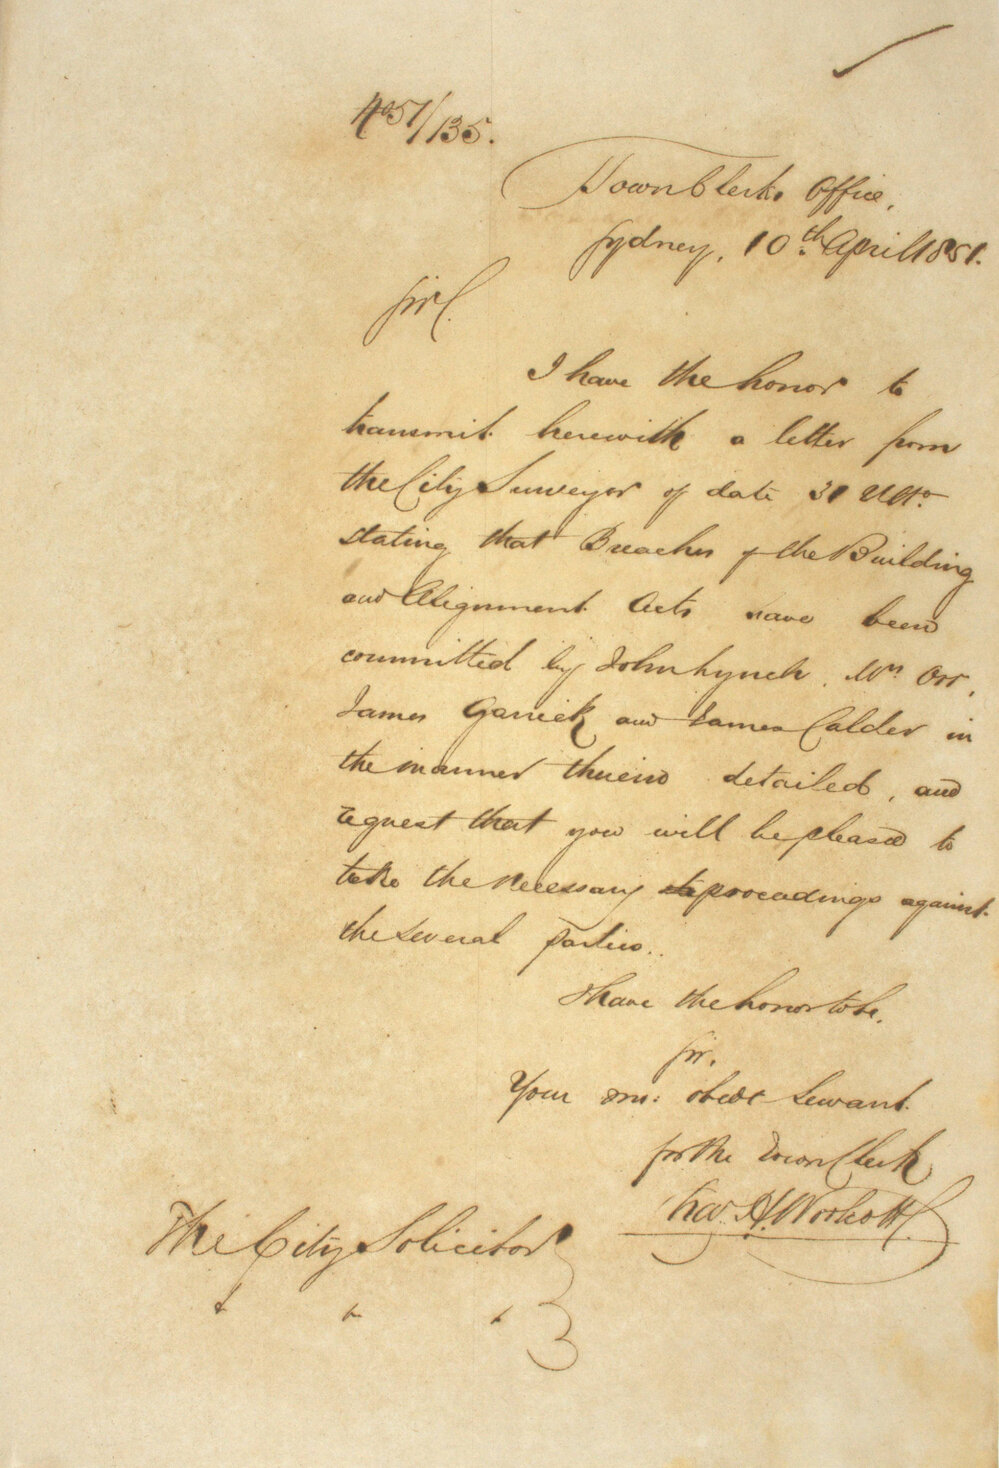 No 51/135.
Town Clerks Office,
Sydney, 10th April 1851.
Sir,
I have the honor to
transmit herewith a letter from
the City Surveyor of date 31 Ulto.
stating that Breaches of the Building
and Alignment Acts have been
committed by John Lynch, Wm Orr,
James Garrick and James Calder in
the manner therein detailed, and
request that you will be pleased to
take the necessary proceedings against
the several parties.
I have the honor to be,
Sir,
Your obedt Servant.
for the Town Clerk
Chas. H. Woolcott
The City Solicitor